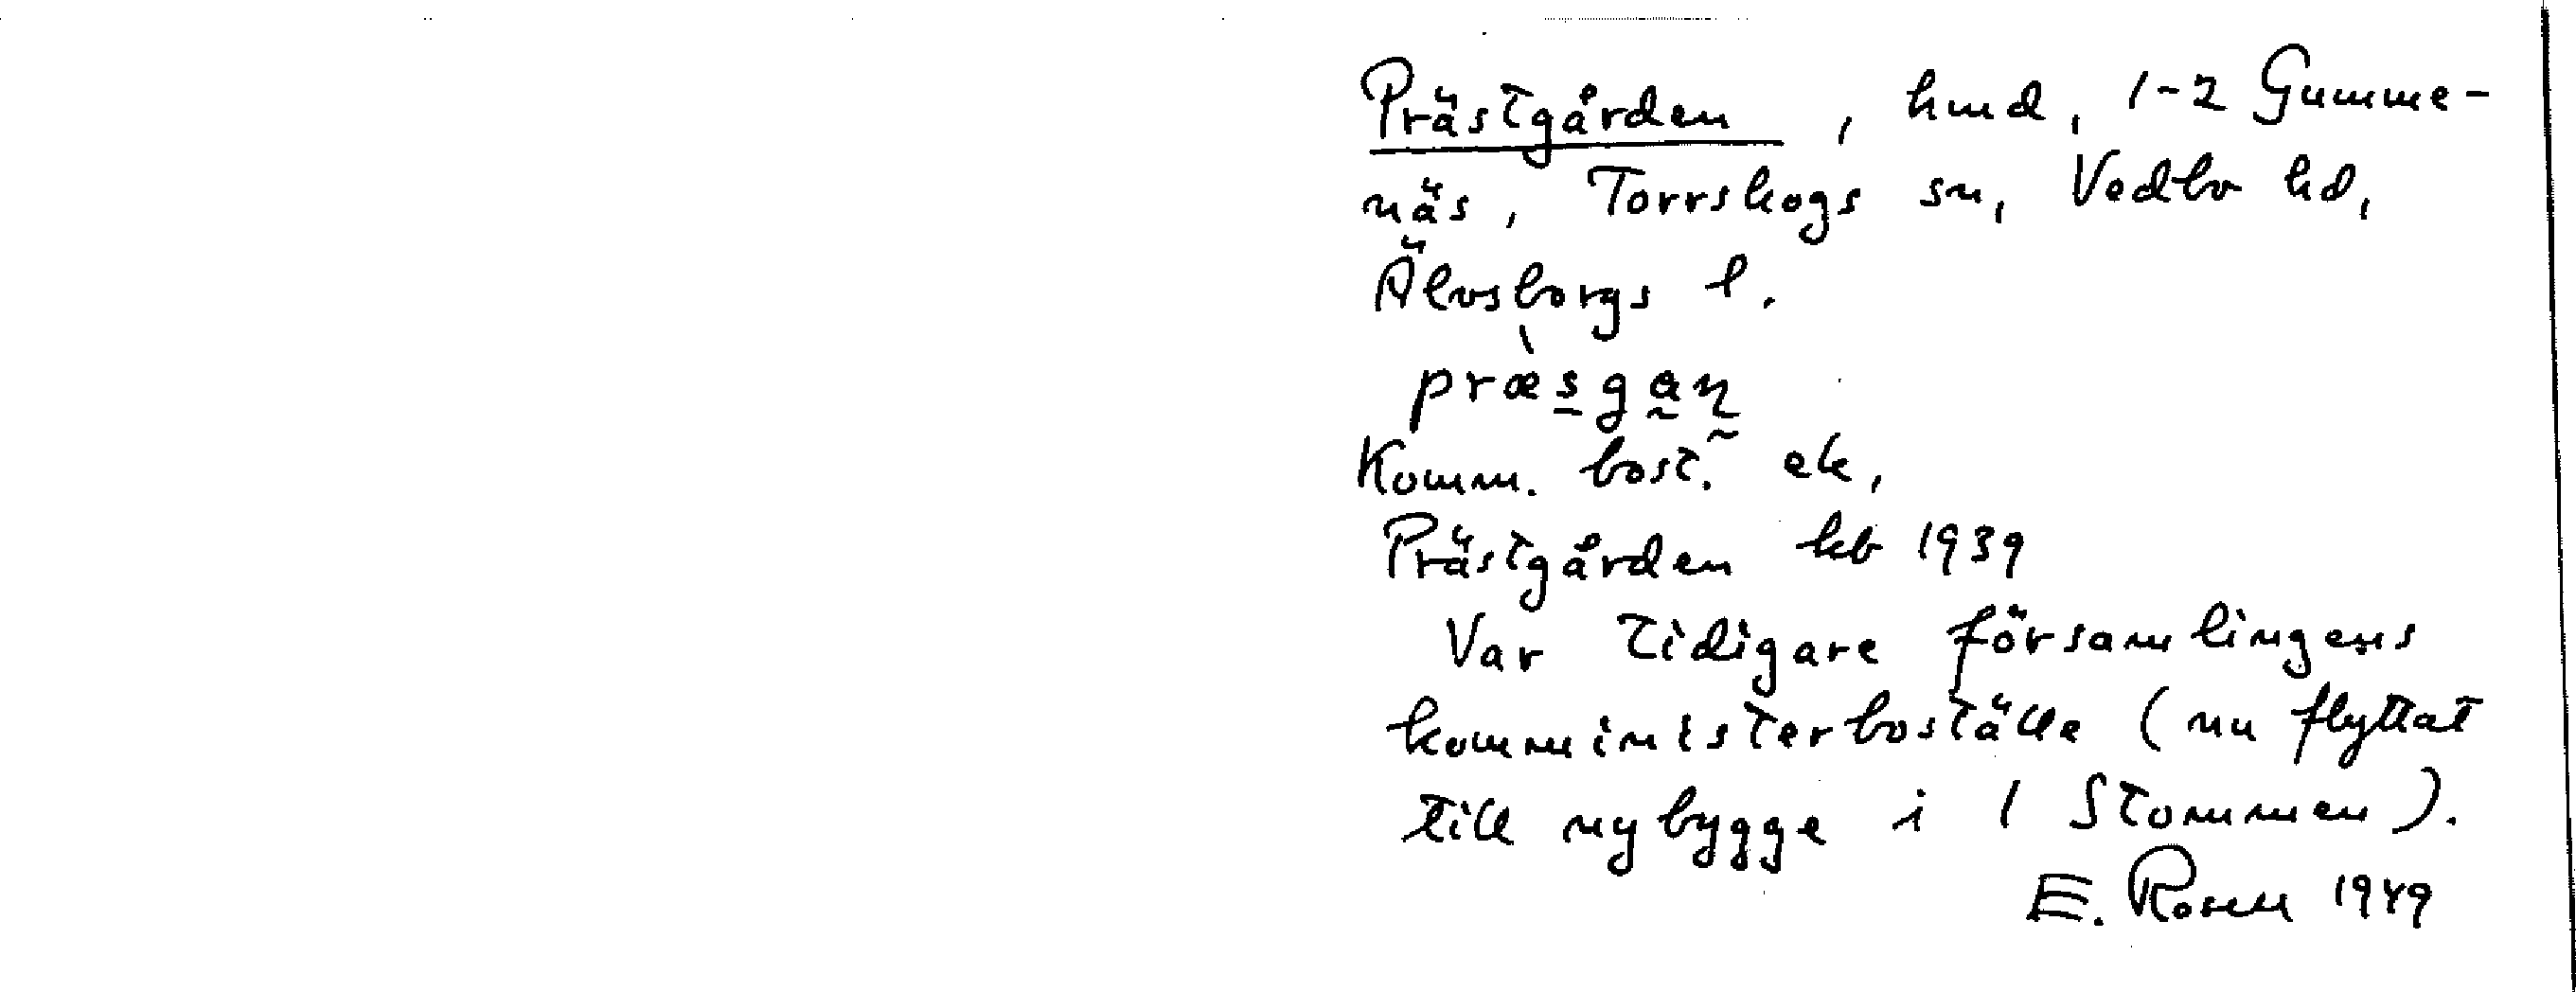 Prästgården, hmd, 1-2 Gumme-
näs, Torrskogs sn, Vedbo hd,
Älvsborgs l.
præ̀s̠ga̰ɳ̰
Komm. bost. ek,
Prästgården kb 1939
Var tidigare församlingens
komministerboställe (nu flyttat
till nybygge i 1 Stommen).
E. Rosell 1949